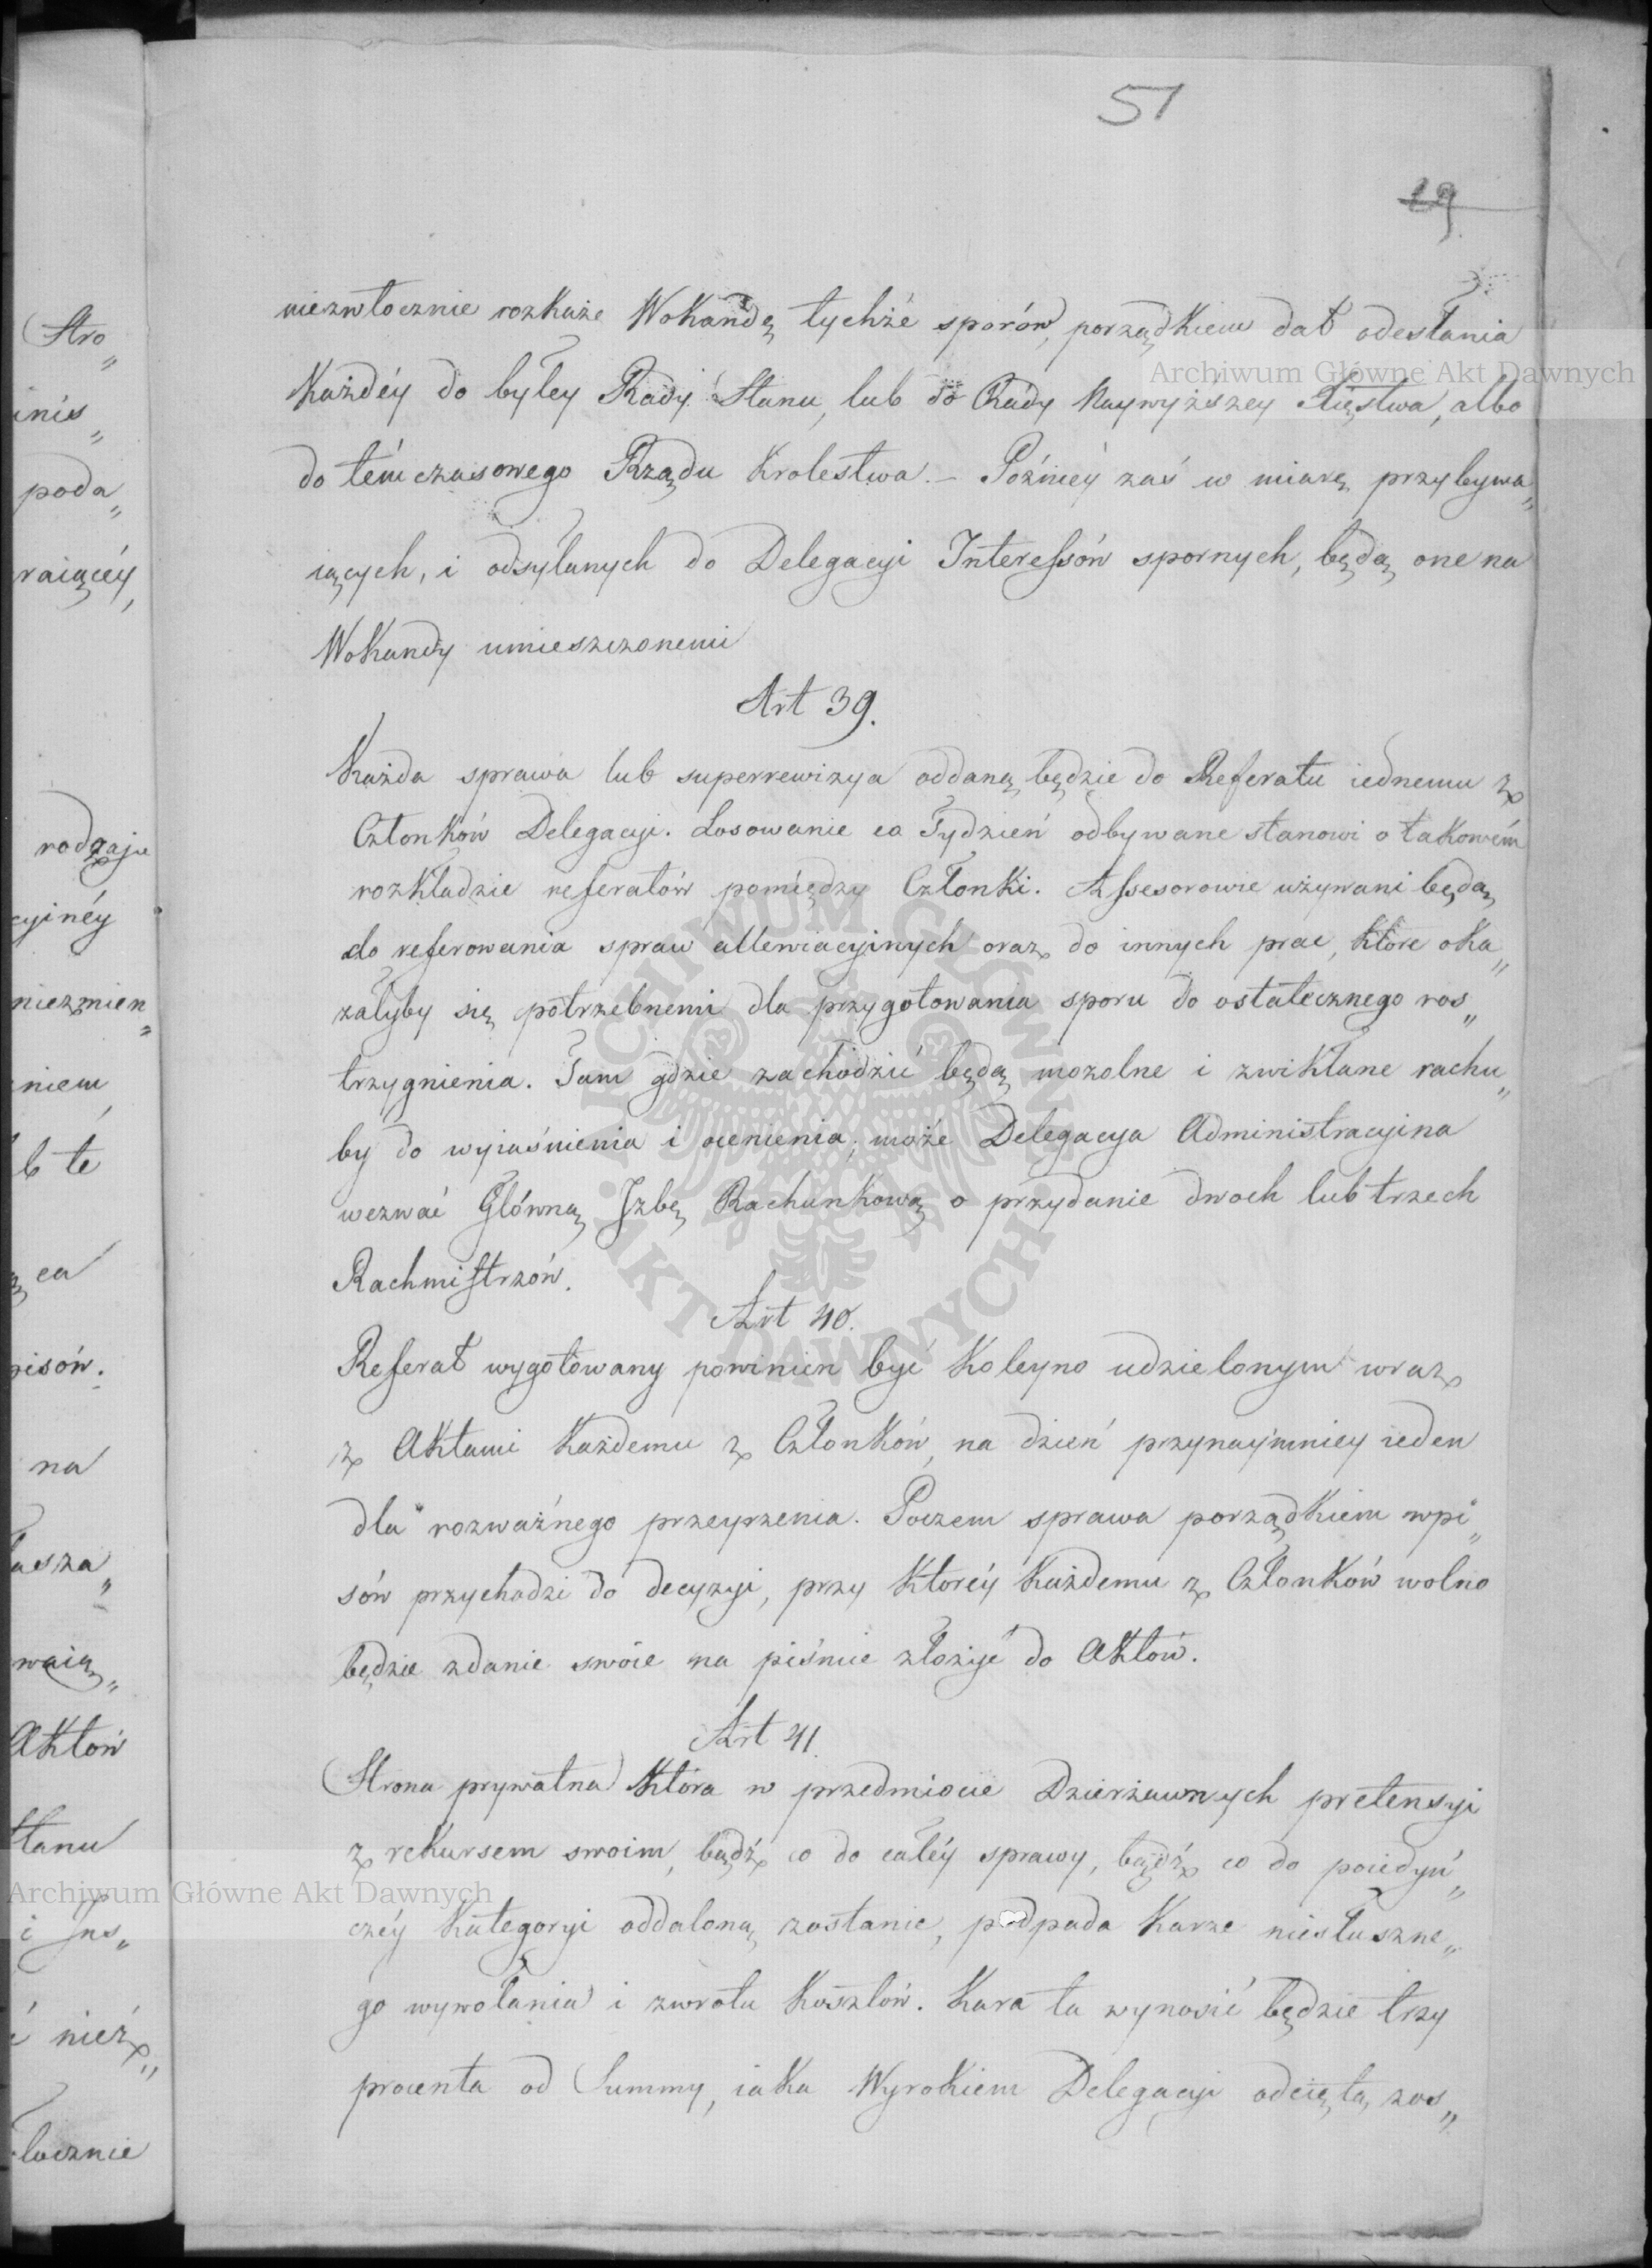 51
29
niezwłocznie rozkaże Wokandę tychże sporów, porządkiem dat odesłania
każdéy do byłey Rady Stanu, lub do Rady Naywyższey Xięstwa, albo
do témczasowego Rządu Krolestwa. – Poźniéy zaś w miarę przybywa„
iących, i odsyłanych do Delegacyi Interessów spornych, będą one na
Wokandy umieszczonemi
Art 39.
Każda sprawa lub superrewizya oddaną będzie do Referatu iednemu z
Członków Delegacyi. Losowanie co Tydzień odbywane stanowi o takowém
rozkładzie referatów pomiędzy Członki. Assesorowie używani będą
do referowania spraw allewiacyinych oraz do innych prac, które oka„
załyby się potrzebnemi dla przygotowania sporu do ostatecznego ros„
trzygnienia. Tam gdzie zachodzić będą mozolne i zwikłane rachu„
by do wyiaśnienia i ocenienia, może Delegacya Administracyina
wezwać Główną Izbę Rachunkową o przydanie dwoch lub trzech
Rachmistrzów.
Art 40.
Referat wygotowany powinien być koleyno udzielonym wraz
z Aktami każdemu z Członków, na dzień przynaymniey ieden
dla rozważnego przeyrzenia. Poczem sprawa porządkiem wpi„
sów przychodzi do decyzyi, przy któréy każdemu z Członków wolno
będzie zdanie swoie na piśmie złożyć do Aktów.
Art 41.
Strona prywatna która w przedmiocie Dzierżawnych pretensyi
z rekursem swoim, bądź co do całéy sprawy, bądź co do poiedyń„
czéy kategoryi oddaloną zostanie, podpada karze niesłuszne„
go wywołania i zwrotu kosztów. Kara ta wynosić będzie trzy
procenta od Summy, iaka Wyrokiem Delegacyi odciętą zos„
Stro„
inis„
poda„
raiącéy,
rodzaju
cyinéy
niezmien„
niem
b te
ca
pisów.
na
łasza„
waią„
Aktów
Stanu
i Ins„
nież„
łocznie
Archiwum Główne Akt Dawnych
Archiwum Główne Akt Dawnych
ARCHIWUM GŁÓWNE AKT DAWNYCH